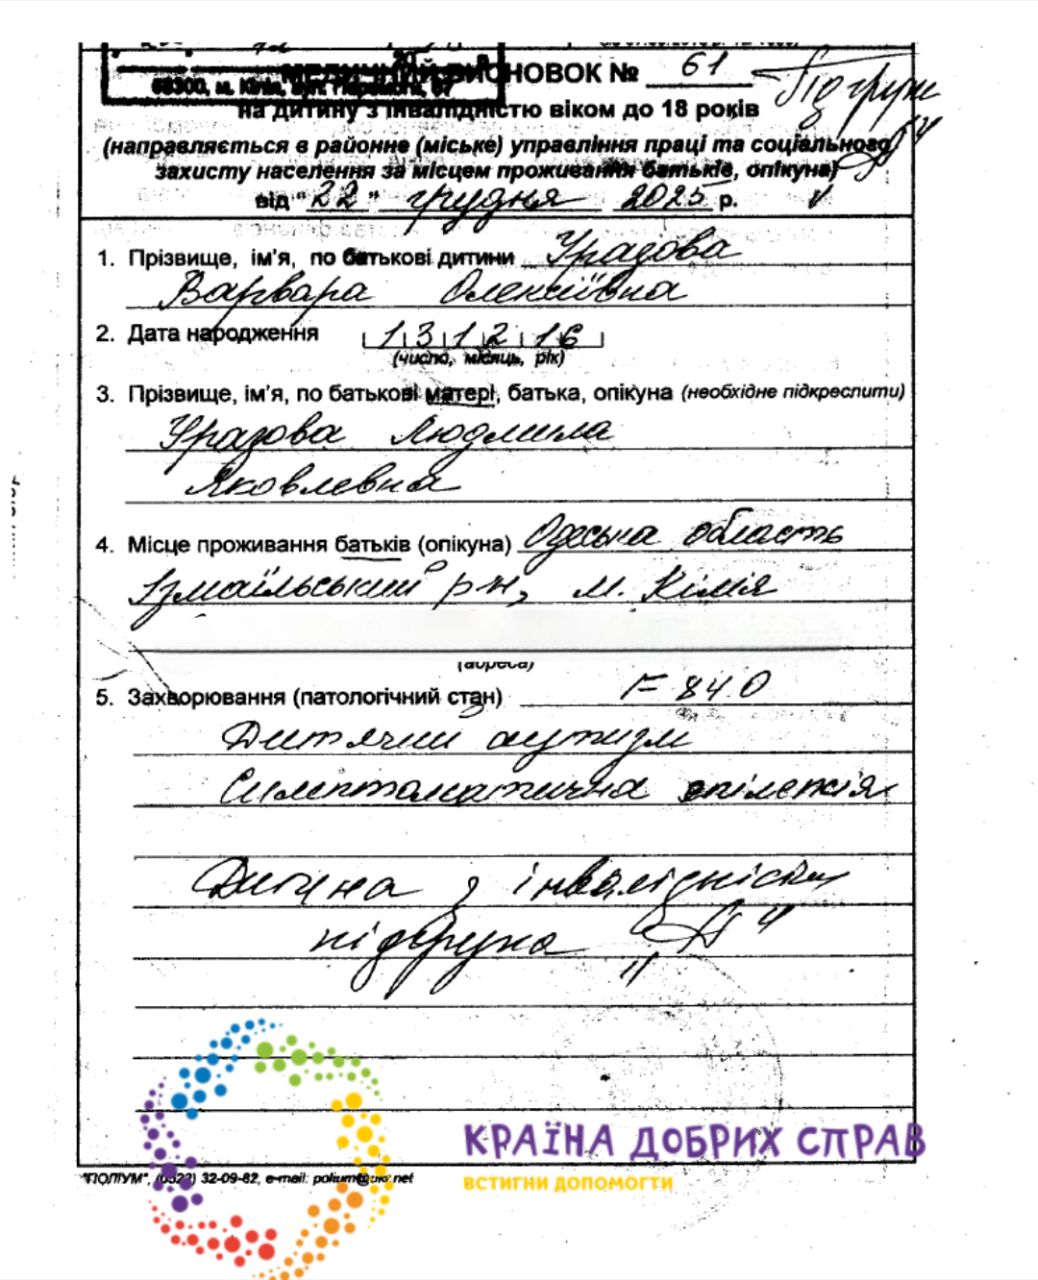 МЕДИЧНИЙ ВИСНОВОК № 61
Підгрупа
68300, м. Кілія, вул. Перемоги, 67
"А"
на дитину з інвалідністю віком до 18 років
(направляється в районне (міське) управління праці та соціального
захисту населення за місцем проживання батьків, опікуна)
від "22" грудня 2025 р.
1. Прізвище, ім'я, по батькові дитини Уразова
Варвара Олексіївна
2. Дата народження 13 12 16
(число, місяць, рік)
3. Прізвище, ім'я, по батькові матері, батька, опікуна (необхідне підкреслити)
Уразова Людмила
Яковлевна
4. Місце проживання батьків (опікуна) Одеська область
Ізмаїльський р-н, м. Кілія
(адреса)
5. Захворювання (патологічний стан) F 84.0
Дитячий аутизм
Симптоматична епілепсія
Дитина з інвалідністю
підгрупа "А"
КРАЇНА ДОБРИХ СПРАВ
ВСТИГНИ ДОПОМОГТИ
"ПОЛІУМ", (0522) 32-09-82, e-mail: polium@ukr.net